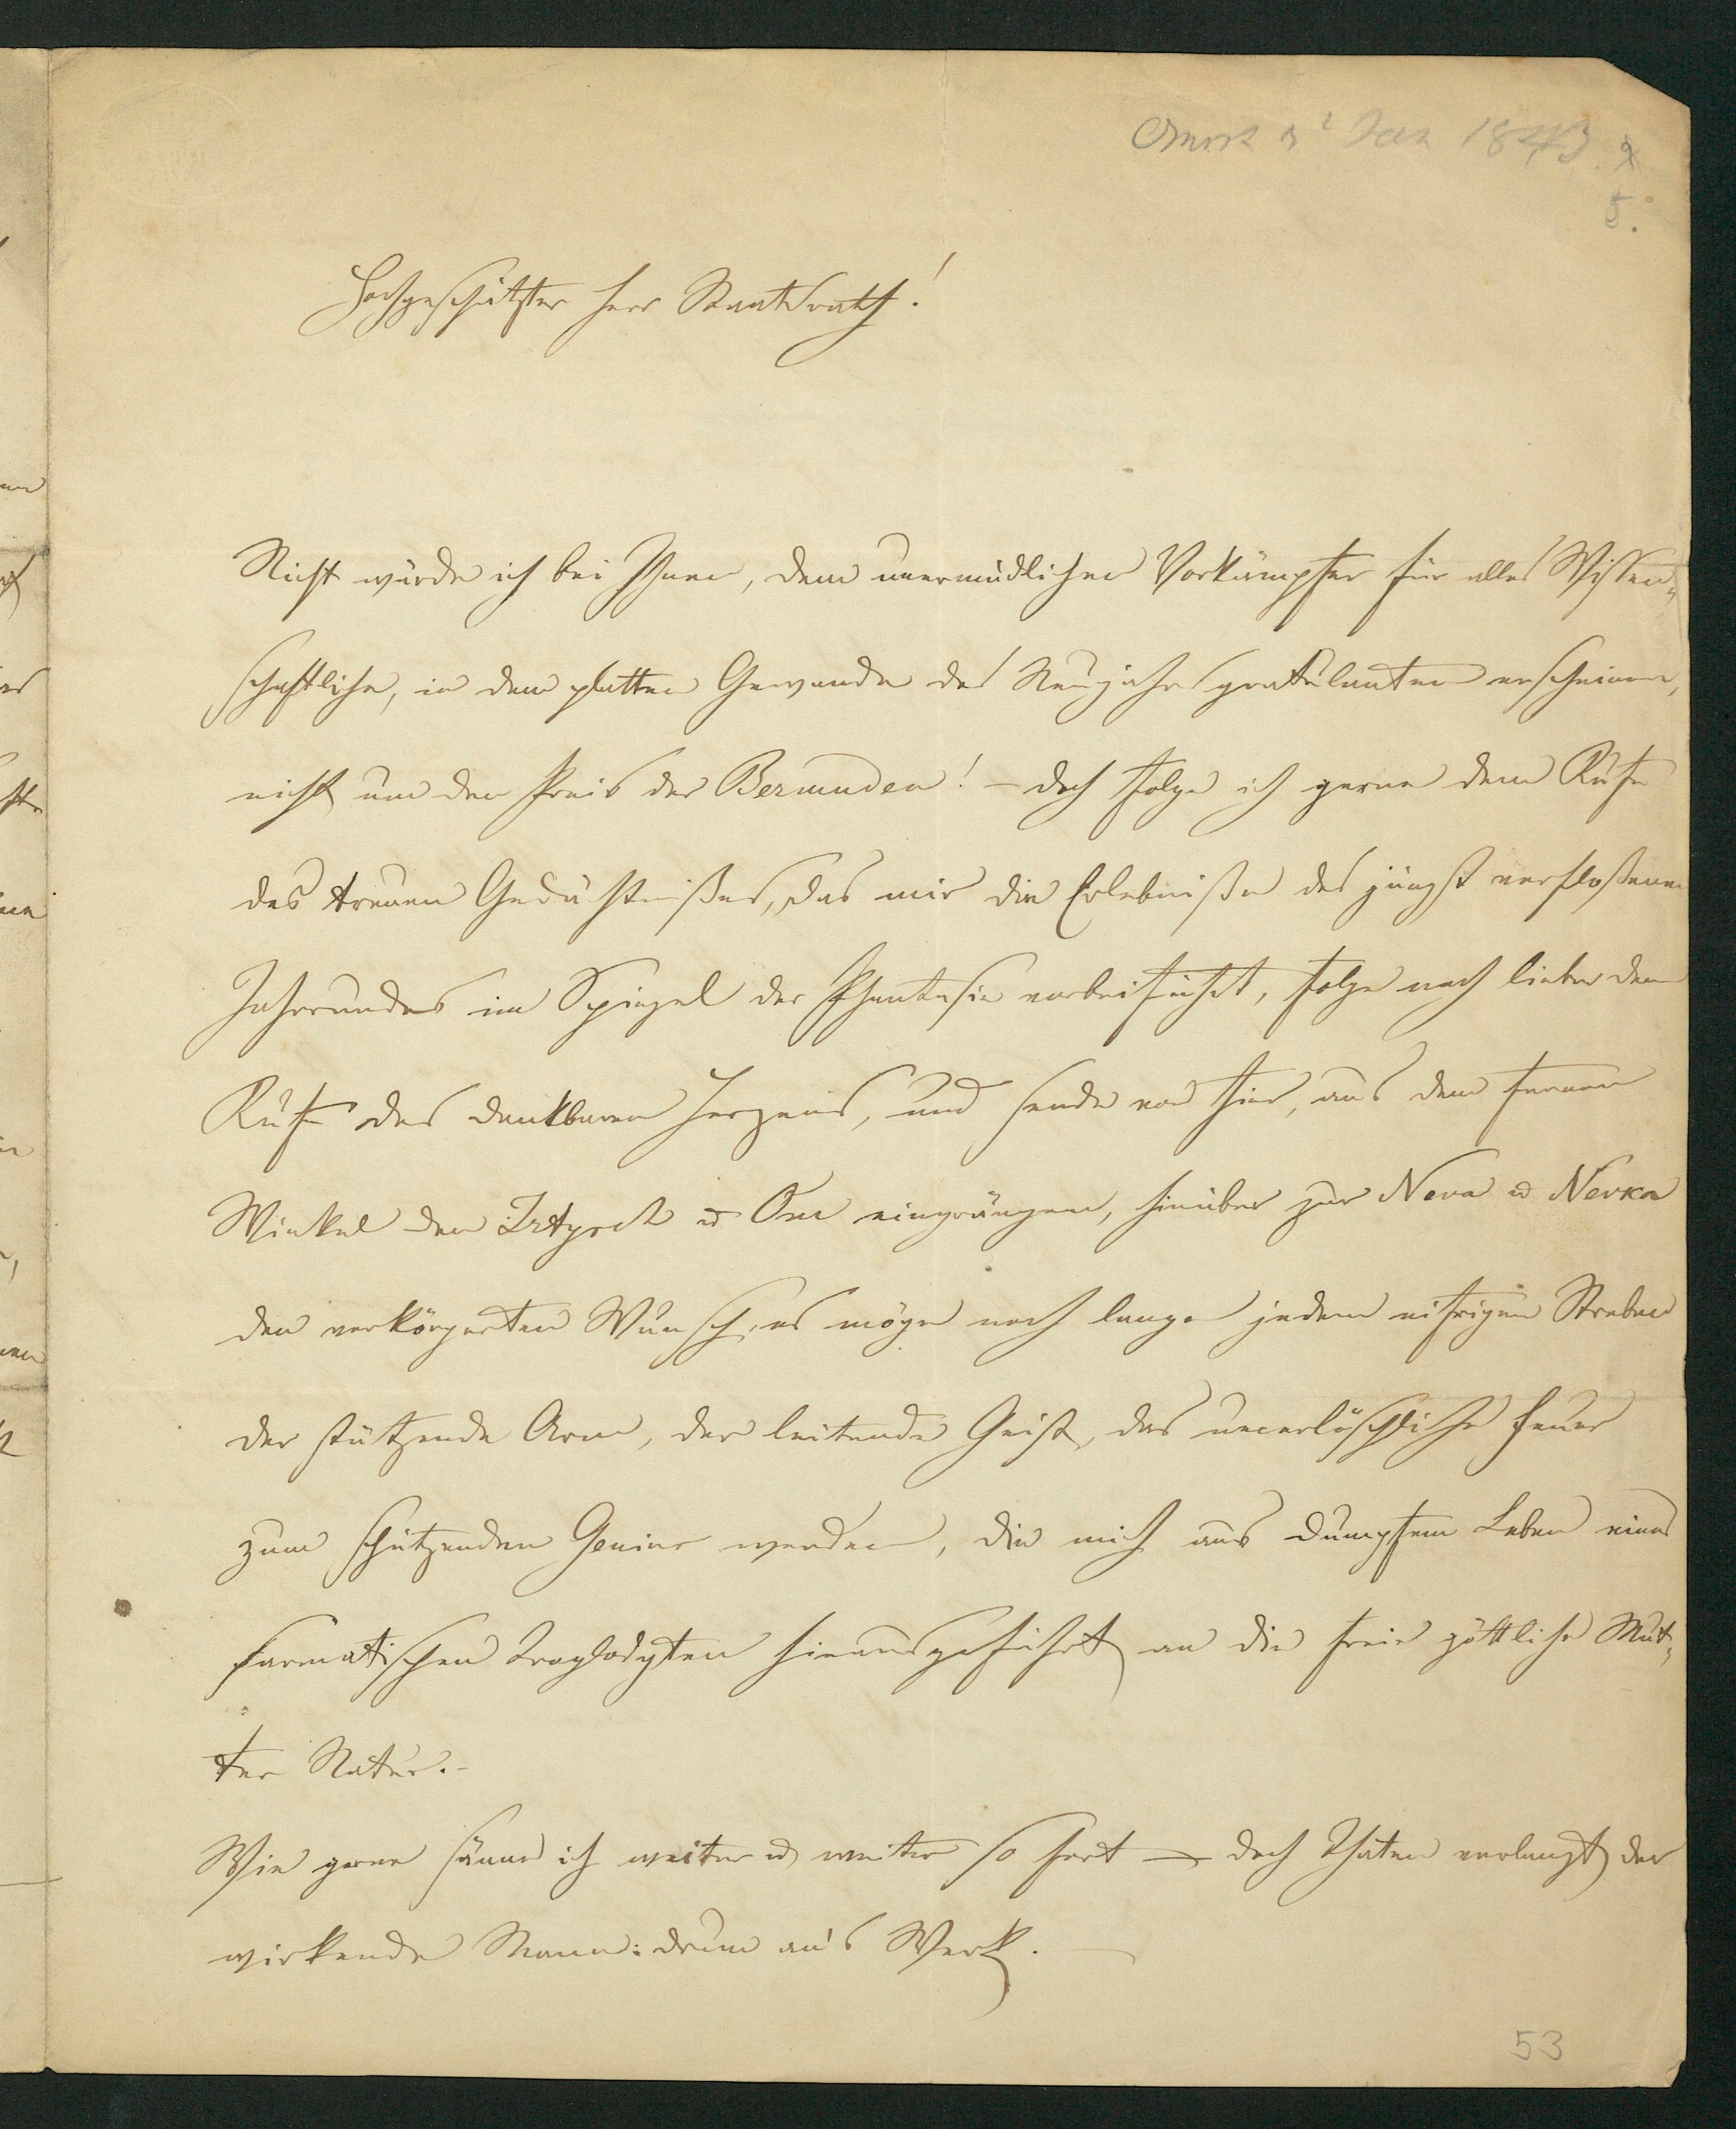 Omsk d 2 Jan 1843.
5.
Hochgeschätzter Herr Staatsrath!
Nicht würde ich bei Ihnen, dem unermüdlichen Vorkämpfer für alles Wissen„
schaftliche, in dem platten Gewande des Neujahrsgratulanten erscheinen,
nicht um den Preis der Bermuden! – doch folge ich gerne dem Rufe
des treuen Gedächtnißes, das mir die Erlebniße des jüngst verfloßenen
Jahrrundes im Spiegel der Phantasie vorbeiführt, folge noch lieber dem
Rufe des dankbaren Herzens, und sende von hier, aus dem fernen
Winkel den Irtysch u Om eingrängen, hinüber zur Neva u Nevka
den verkörperten Wunsch, es möge noch lange jedem eifrigen Streben
der stützende Arm, der leitende Geist, das unerlöschliche Feuer
zum schützenden Genius werden, die mich aus dumpfem Leben eines
sarmatischen Troglodyten hinausgeführt an die freie göttliche Mut„
ter Natur.–
Wie gerne sänne ich weiter u weiter so fort – doch Thaten verlangt der
wirkende Mann: drum an's Werk. –
53